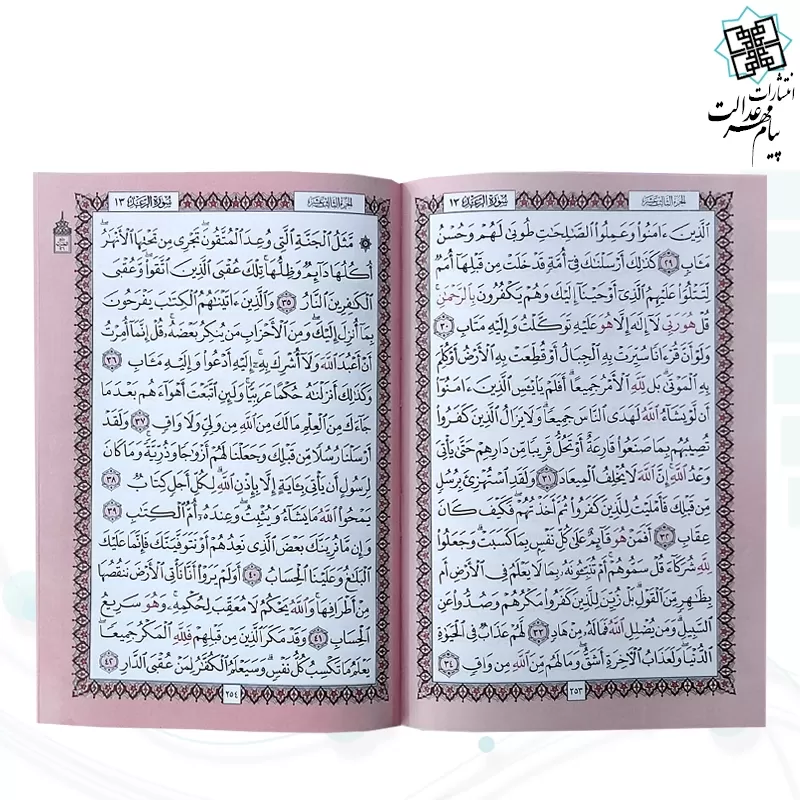 انتشارات
پیام مهر عدالت
الجزء الثالث عشر
سورة الرعد ١٣
الَّذِينَ ءَامَنُوا وَعَمِلُوا الصَّٰلِحَٰتِ طُوبَىٰ لَهُمْ وَحُسْنُ
مَـَٔابٍ ٢٩ كَذَٰلِكَ أَرْسَلْنَٰكَ فِىٓ أُمَّةٍ قَدْ خَلَتْ مِن قَبْلِهَآ أُمَمٌ
لِّتَتْلُوَا۟ عَلَيْهِمُ الَّذِىٓ أَوْحَيْنَآ إِلَيْكَ وَهُمْ يَكْفُرُونَ بِالرَّحْمَٰنِ ۚ
قُلْ هُوَ رَبِّى لَآ إِلَٰهَ إِلَّا هُوَ عَلَيْهِ تَوَكَّلْتُ وَإِلَيْهِ مَتَابِ ٣٠
وَلَوْ أَنَّ قُرْءَانًا سُيِّرَتْ بِهِ الْجِبَالُ أَوْ قُطِّعَتْ بِهِ الْأَرْضُ أَوْ كُلِّمَ
بِهِ الْمَوْتَىٰ ۗ بَل لِّلَّهِ الْأَمْرُ جَمِيعًا ۗ أَفَلَمْ يَا۟يْـَٔسِ الَّذِينَ ءَامَنُوٓا۟
أَن لَّوْ يَشَآءُ اللَّهُ لَهَدَى النَّاسَ جَمِيعًا ۗ وَلَا يَزَالُ الَّذِينَ كَفَرُوا۟
تُصِيبُهُم بِمَا صَنَعُوا۟ قَارِعَةٌ أَوْ تَحُلُّ قَرِيبًا مِّن دَارِهِمْ حَتَّىٰ يَأْتِىَ
وَعْدُ اللَّهِ ۚ إِنَّ اللَّهَ لَا يُخْلِفُ الْمِيعَادَ ٣١ وَلَقَدِ اسْتُهْزِئَ بِرُسُلٍ
مِّن قَبْلِكَ فَأَمْلَيْتُ لِلَّذِينَ كَفَرُوا۟ ثُمَّ أَخَذْتُهُمْ ۖ فَكَيْفَ كَانَ
عِقَابِ ٣٢ أَفَمَنْ هُوَ قَآئِمٌ عَلَىٰ كُلِّ نَفْسٍ بِمَا كَسَبَتْ ۗ وَجَعَلُوا۟
لِلَّهِ شُرَكَآءَ قُلْ سَمُّوهُمْ ۚ أَمْ تُنَبِّـُٔونَهُۥ بِمَا لَا يَعْلَمُ فِى الْأَرْضِ أَم
بِظَٰهِرٍ مِّنَ الْقَوْلِ ۗ بَلْ زُيِّنَ لِلَّذِينَ كَفَرُوا۟ مَكْرُهُمْ وَصُدُّوا۟ عَنِ
السَّبِيلِ ۗ وَمَن يُضْلِلِ اللَّهُ فَمَا لَهُۥ مِنْ هَادٍ ٣٣ لَّهُمْ عَذَابٌ فِى الْحَيَوٰةِ
الدُّنْيَا ۖ وَلَعَذَابُ الْـَٔاخِرَةِ أَشَقُّ ۖ وَمَا لَهُم مِّنَ اللَّهِ مِن وَاقٍ ٣٤
٢٥٣
الجزء الثالث عشر
سورة الرعد ١٣
مَّثَلُ الْجَنَّةِ الَّتِى وُعِدَ الْمُتَّقُونَ ۖ تَجْرِى مِن تَحْتِهَا الْأَنْهَٰرُ ۖ
أُكُلُهَا دَآئِمٌ وَظِلُّهَا ۚ تِلْكَ عُقْبَى الَّذِينَ اتَّقَوا۟ ۖ وَّعُقْبَى
الْكَٰفِرِينَ النَّارُ ٣٥ وَالَّذِينَ ءَاتَيْنَٰهُمُ الْكِتَٰبَ يَفْرَحُونَ
بِمَآ أُنزِلَ إِلَيْكَ ۖ وَمِنَ الْأَحْزَابِ مَن يُنكِرُ بَعْضَهُۥ ۚ قُلْ إِنَّمَآ أُمِرْتُ
أَنْ أَعْبُدَ اللَّهَ وَلَآ أُشْرِكَ بِهِۦٓ ۚ إِلَيْهِ أَدْعُوا۟ وَإِلَيْهِ مَـَٔابِ ٣٦
وَكَذَٰلِكَ أَنزَلْنَٰهُ حُكْمًا عَرَبِيًّا ۚ وَلَئِنِ اتَّبَعْتَ أَهْوَآءَهُم بَعْدَ مَا
جَآءَكَ مِنَ الْعِلْمِ مَا لَكَ مِنَ اللَّهِ مِن وَلِىٍّ وَلَا وَاقٍ ٣٧ وَلَقَدْ
أَرْسَلْنَا رُسُلًا مِّن قَبْلِكَ وَجَعَلْنَا لَهُمْ أَزْوَٰجًا وَذُرِّيَّةً ۚ وَمَا كَانَ
لِرَسُولٍ أَن يَأْتِىَ بِـَٔايَةٍ إِلَّا بِإِذْنِ اللَّهِ ۗ لِكُلِّ أَجَلٍ كِتَابٌ ٣٨
يَمْحُوا۟ اللَّهُ مَا يَشَآءُ وَيُثْبِتُ ۖ وَعِندَهُۥٓ أُمُّ الْكِتَٰبِ ٣٩
وَإِن مَّا نُرِيَنَّكَ بَعْضَ الَّذِى نَعِدُهُمْ أَوْ نَتَوَفَّيَنَّكَ فَإِنَّمَا عَلَيْكَ
الْبَلَٰغُ وَعَلَيْنَا الْحِسَابُ ٤٠ أَوَلَمْ يَرَوْا۟ أَنَّا نَأْتِى الْأَرْضَ نَنقُصُهَا
مِنْ أَطْرَافِهَا ۚ وَاللَّهُ يَحْكُمُ لَا مُعَقِّبَ لِحُكْمِهِۦ ۚ وَهُوَ سَرِيعُ
الْحِسَابِ ٤١ وَقَدْ مَكَرَ الَّذِينَ مِن قَبْلِهِمْ فَلِلَّهِ الْمَكْرُ جَمِيعًا ۖ
يَعْلَمُ مَا تَكْسِبُ كُلُّ نَفْسٍ ۗ وَسَيَعْلَمُ الْكُفَّٰرُ لِمَنْ عُقْبَى الدَّارِ ٤٢
٢٥٤